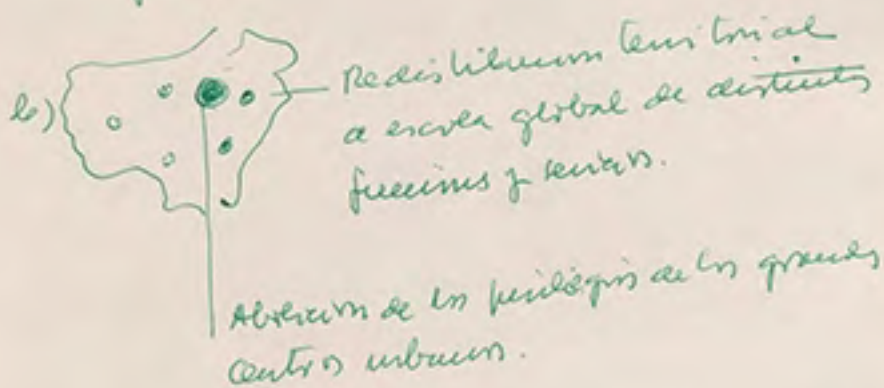 b)
Redistribución territorial
a escala global de distintas
funciones y servicios.
Abolición de los privilegios de los grandes
centros urbanos.